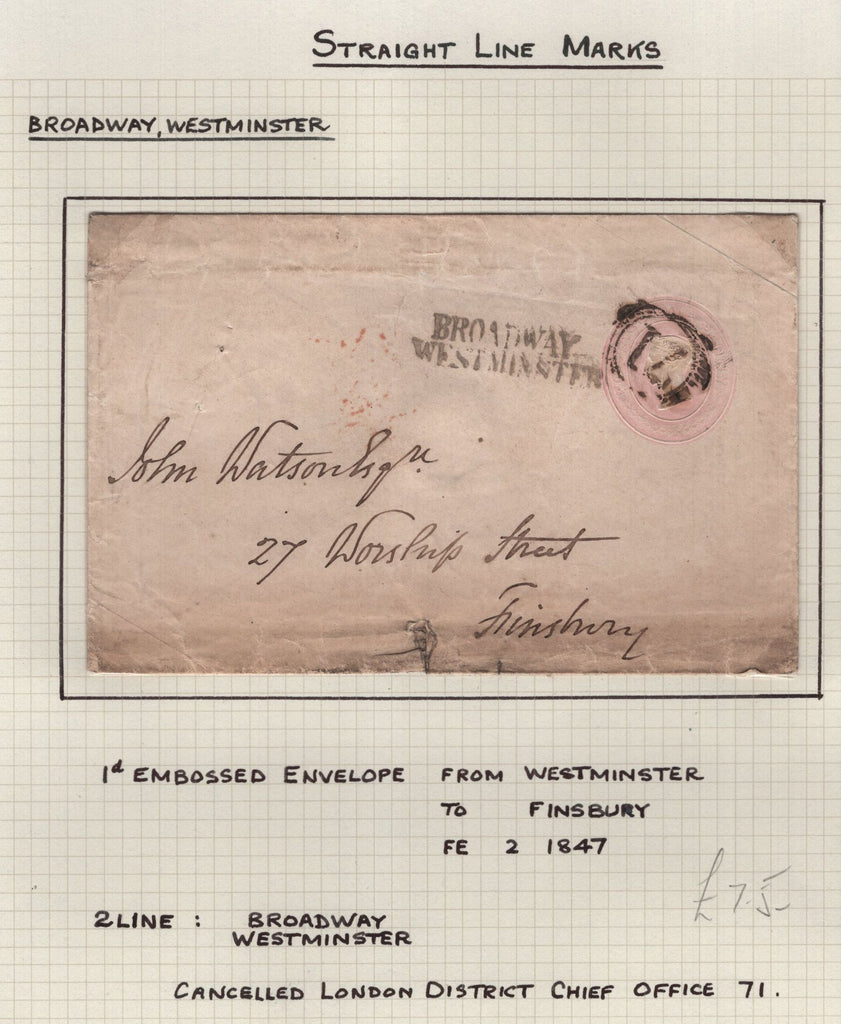 STRAIGHT LINE MARKS
BROADWAY, WESTMINSTER
BROADWAY
WESTMINSTER
John Watson Esqre
27 Worship Street
Finsbury
1d EMBOSSED ENVELOPE FROM WESTMINSTER
TO FINSBURY
FE 2 1847
£75-
2 LINE : BROADWAY
WESTMINSTER
CANCELLED LONDON DISTRICT CHIEF OFFICE 71.